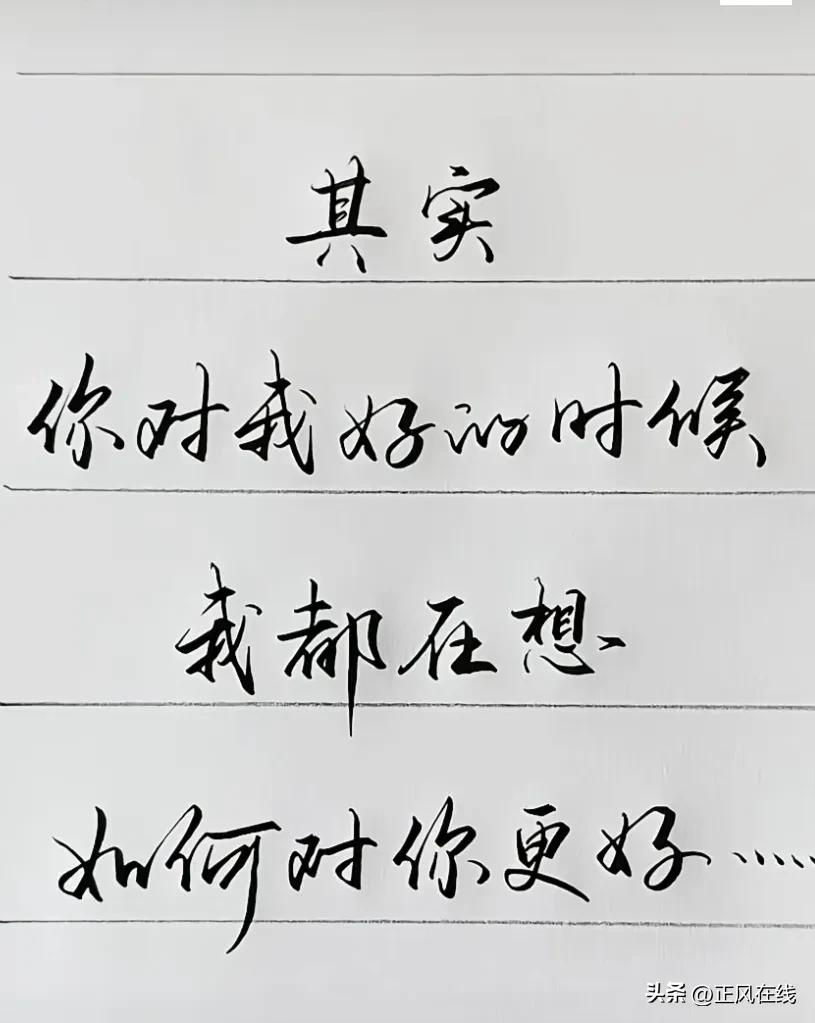 其实
你对我好的时候
我都在想
如何对你更好……
头条 @正风在线